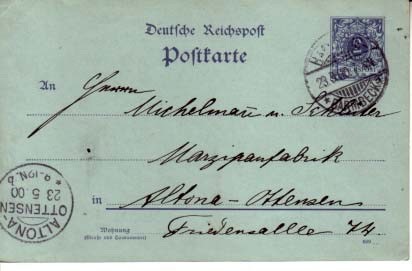 Deutsche Reichspost
Postkarte
An
Herren
Michelmau u. Schlüter
Marzipanfabrik
in Altona-Ottensen
Wohnung
(Straße und Hausnummer)
Friedensallee 74.
ALTONA
OTTENSEN
23 5.00